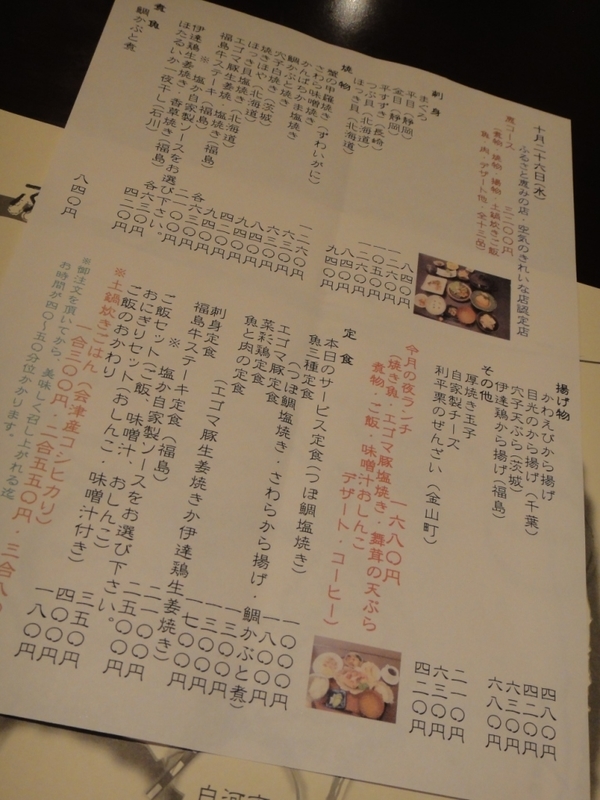 十月二十六日(水)
ふるさと恵みの店・空気のきれいな店認定店
煮コース 三二〇〇円
(煮物・焼物・揚物・土鍋炊きご飯
魚・肉・デザート他・全十三色)
刺身
まぐろ
平目(静岡)
金目(静岡)
平すずき(長崎)
つぶ貝(北海道)
ほっき貝(北海道)
八四〇円
一二六〇円
一〇五〇円
一二六〇円
八四〇円
九四〇円
焼物
蟹の甲羅焼き(ずわいがに)
さわら味噌焼き
かんぱちかま塩焼き
鯛かぶと焼き
穴子白焼き(茨城)
焼きほや(北海道)
ほっき貝塩焼き(北海道)
エゴマ豚生姜焼き・塩焼き(福島)
福島牛ステーキ(福島)
※塩か自家製ソースをお選び下さい。
伊達鶏生姜焼き・香草焼き(福島)
ほたるいか一夜干し(石川)
煮魚
鯛かぶと煮
八四〇円
揚げ物
かわえびから揚げ
目光のから揚げ(千葉)
穴子天ぷら(茨城)
伊達鶏から揚げ(福島)
四八〇円
四二〇円
六三〇円
六八〇円
その他
厚焼き玉子
自家製チーズ
利平栗のぜんざい(金山町)
二一〇円
六三〇円
四二〇円
今月の夜ランチ 一六八〇円
(焼き魚・エゴマ豚塩焼き・舞茸の天ぷら
煮物・ご飯・味噌汁おしんこ
デザート・コーヒー)
定食
本日のサービス定食(つぼ鯛塩焼き)
魚三種定食
(つぼ鯛塩焼き・さわらから揚げ・鯛かぶと煮)
エゴマ豚定食
菜彩鶏定食
魚と肉の定食
(エゴマ豚生姜焼きか伊達鶏生姜焼き)
刺身定食
福島牛ステーキ定食(福島)
※塩か自家製ソースをお選び下さい。
ご飯セット(ご飯、味噌汁、おしんこ)
おにぎりセット(おしんこ・味噌汁付き)
ご飯のおかわり
三五〇円
四〇〇円
一八〇円
※土鍋炊きごはん(会津産コシヒカリ)
一合三〇〇円・二合五五〇円・三合八
※御注文を頂いてから、美味しく召し上がれる迄
お時間が四〇〜五〇分位かかります。
白河